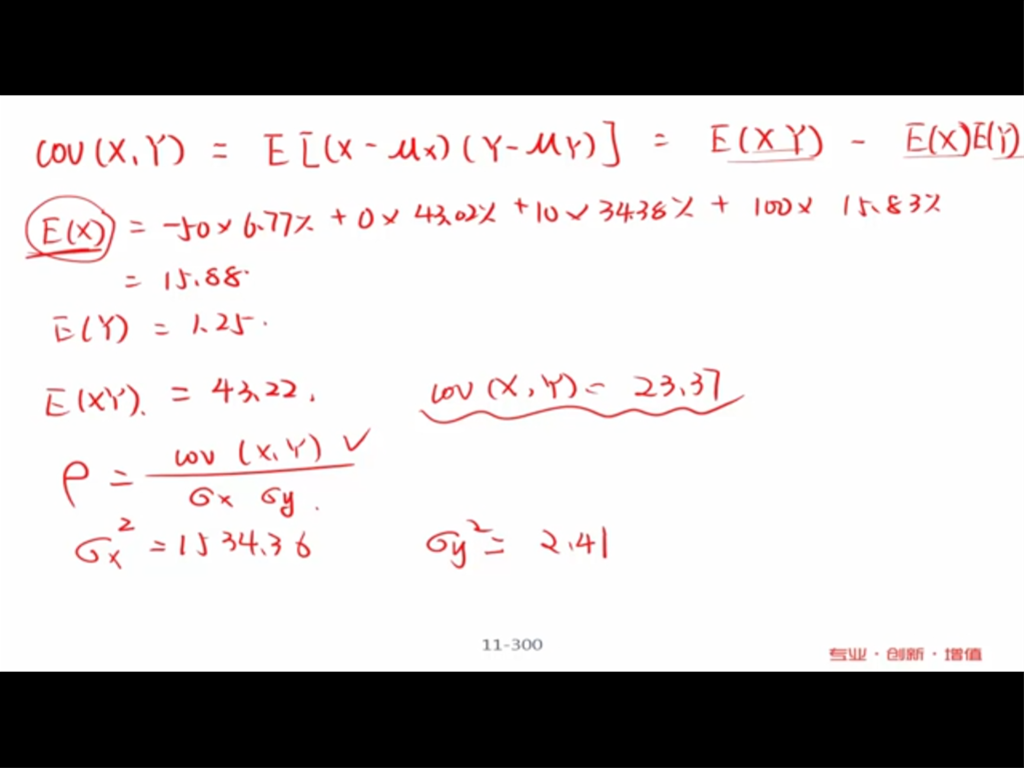 cov (X, Y) = E [(X - μx) (Y - μY)] = E (XY) - E(X)E(Y)
E(X) = -50 × 6.77% + 0 × 43.02% + 10 × 34.38% + 100 × 15.83%
= 15.88.
E(Y) = 1.25.
E(XY). = 43.22. cov (X, Y) = 23.37
ρ = cov (X, Y) ✓ / σx σy.
σx² = 1534.36 σy² = 2.41
11-300
专业·创新·增值